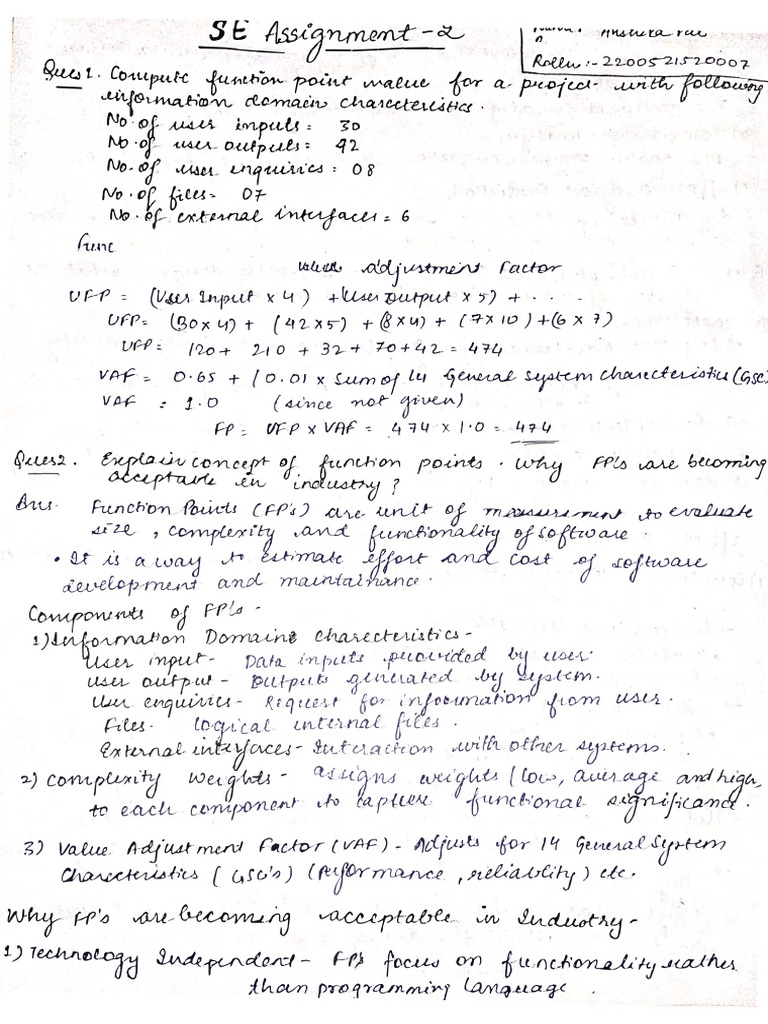 SE Assignment-2
Rolln :- 2200521520007
Ques1. Compute function point value for a project with following
information domain charecteristics.
No. of user inputs = 30
No. of user outputs = 42
No. of user enquiries = 08
No. of files = 07
No. of external interfaces = 6
Func
Adjustment Factor
UFP = (User Input x 4) + (User Output x 5) + . . .
UFP = (30 x 4) + (42 x 5) + (8 x 4) + (7 x 10) + (6 x 7)
UFP = 120 + 210 + 32 + 70 + 42 = 474
VAF = 0.65 + (0.01 x Sum of 14 General System Charecteristics (GSC)
VAF = 1.0 (since not given)
FP = UFP x VAF = 474 x 1.0 = 474
Ques2. Explain concept of function points. Why FP's are becoming
acceptable in industry?
Ans. Function Points (FP's) are unit of measurement to evaluate
size, complexity and functionality of software.
• It is a way to estimate effort and cost of software
development and maintainance.
Components of FP's -
1) Information Domains Charecteristics -
User input - Data inputs provided by user.
User output - Outputs generated by system.
User enquiries - Request for information from user.
Files - Logical internal files.
External interfaces - Interaction with other systems.
2) Complexity Weights - assigns weights (low, average and high,
to each component to capture functional significance.
3) Value Adjustment Factor (VAF) - Adjusts for 14 General System
Charecteristics (GSC's) (Performance, reliability) etc.
Why FP's are becoming acceptable in Industry -
1) Technology Independent - FP's focus on functionality rather
than programming language.